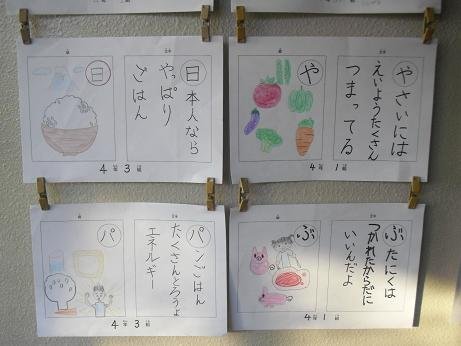 日
日本人なら
やっぱり
ごはん
4年3組
や
やさいには
えいようたくさん
つまってる
4年1組
パ
パンごはん
たくさんとろうよ
エネルギー
4年3組
ぶ
ぶたにくは
つかれたからだに
いいんだよ
4年1組